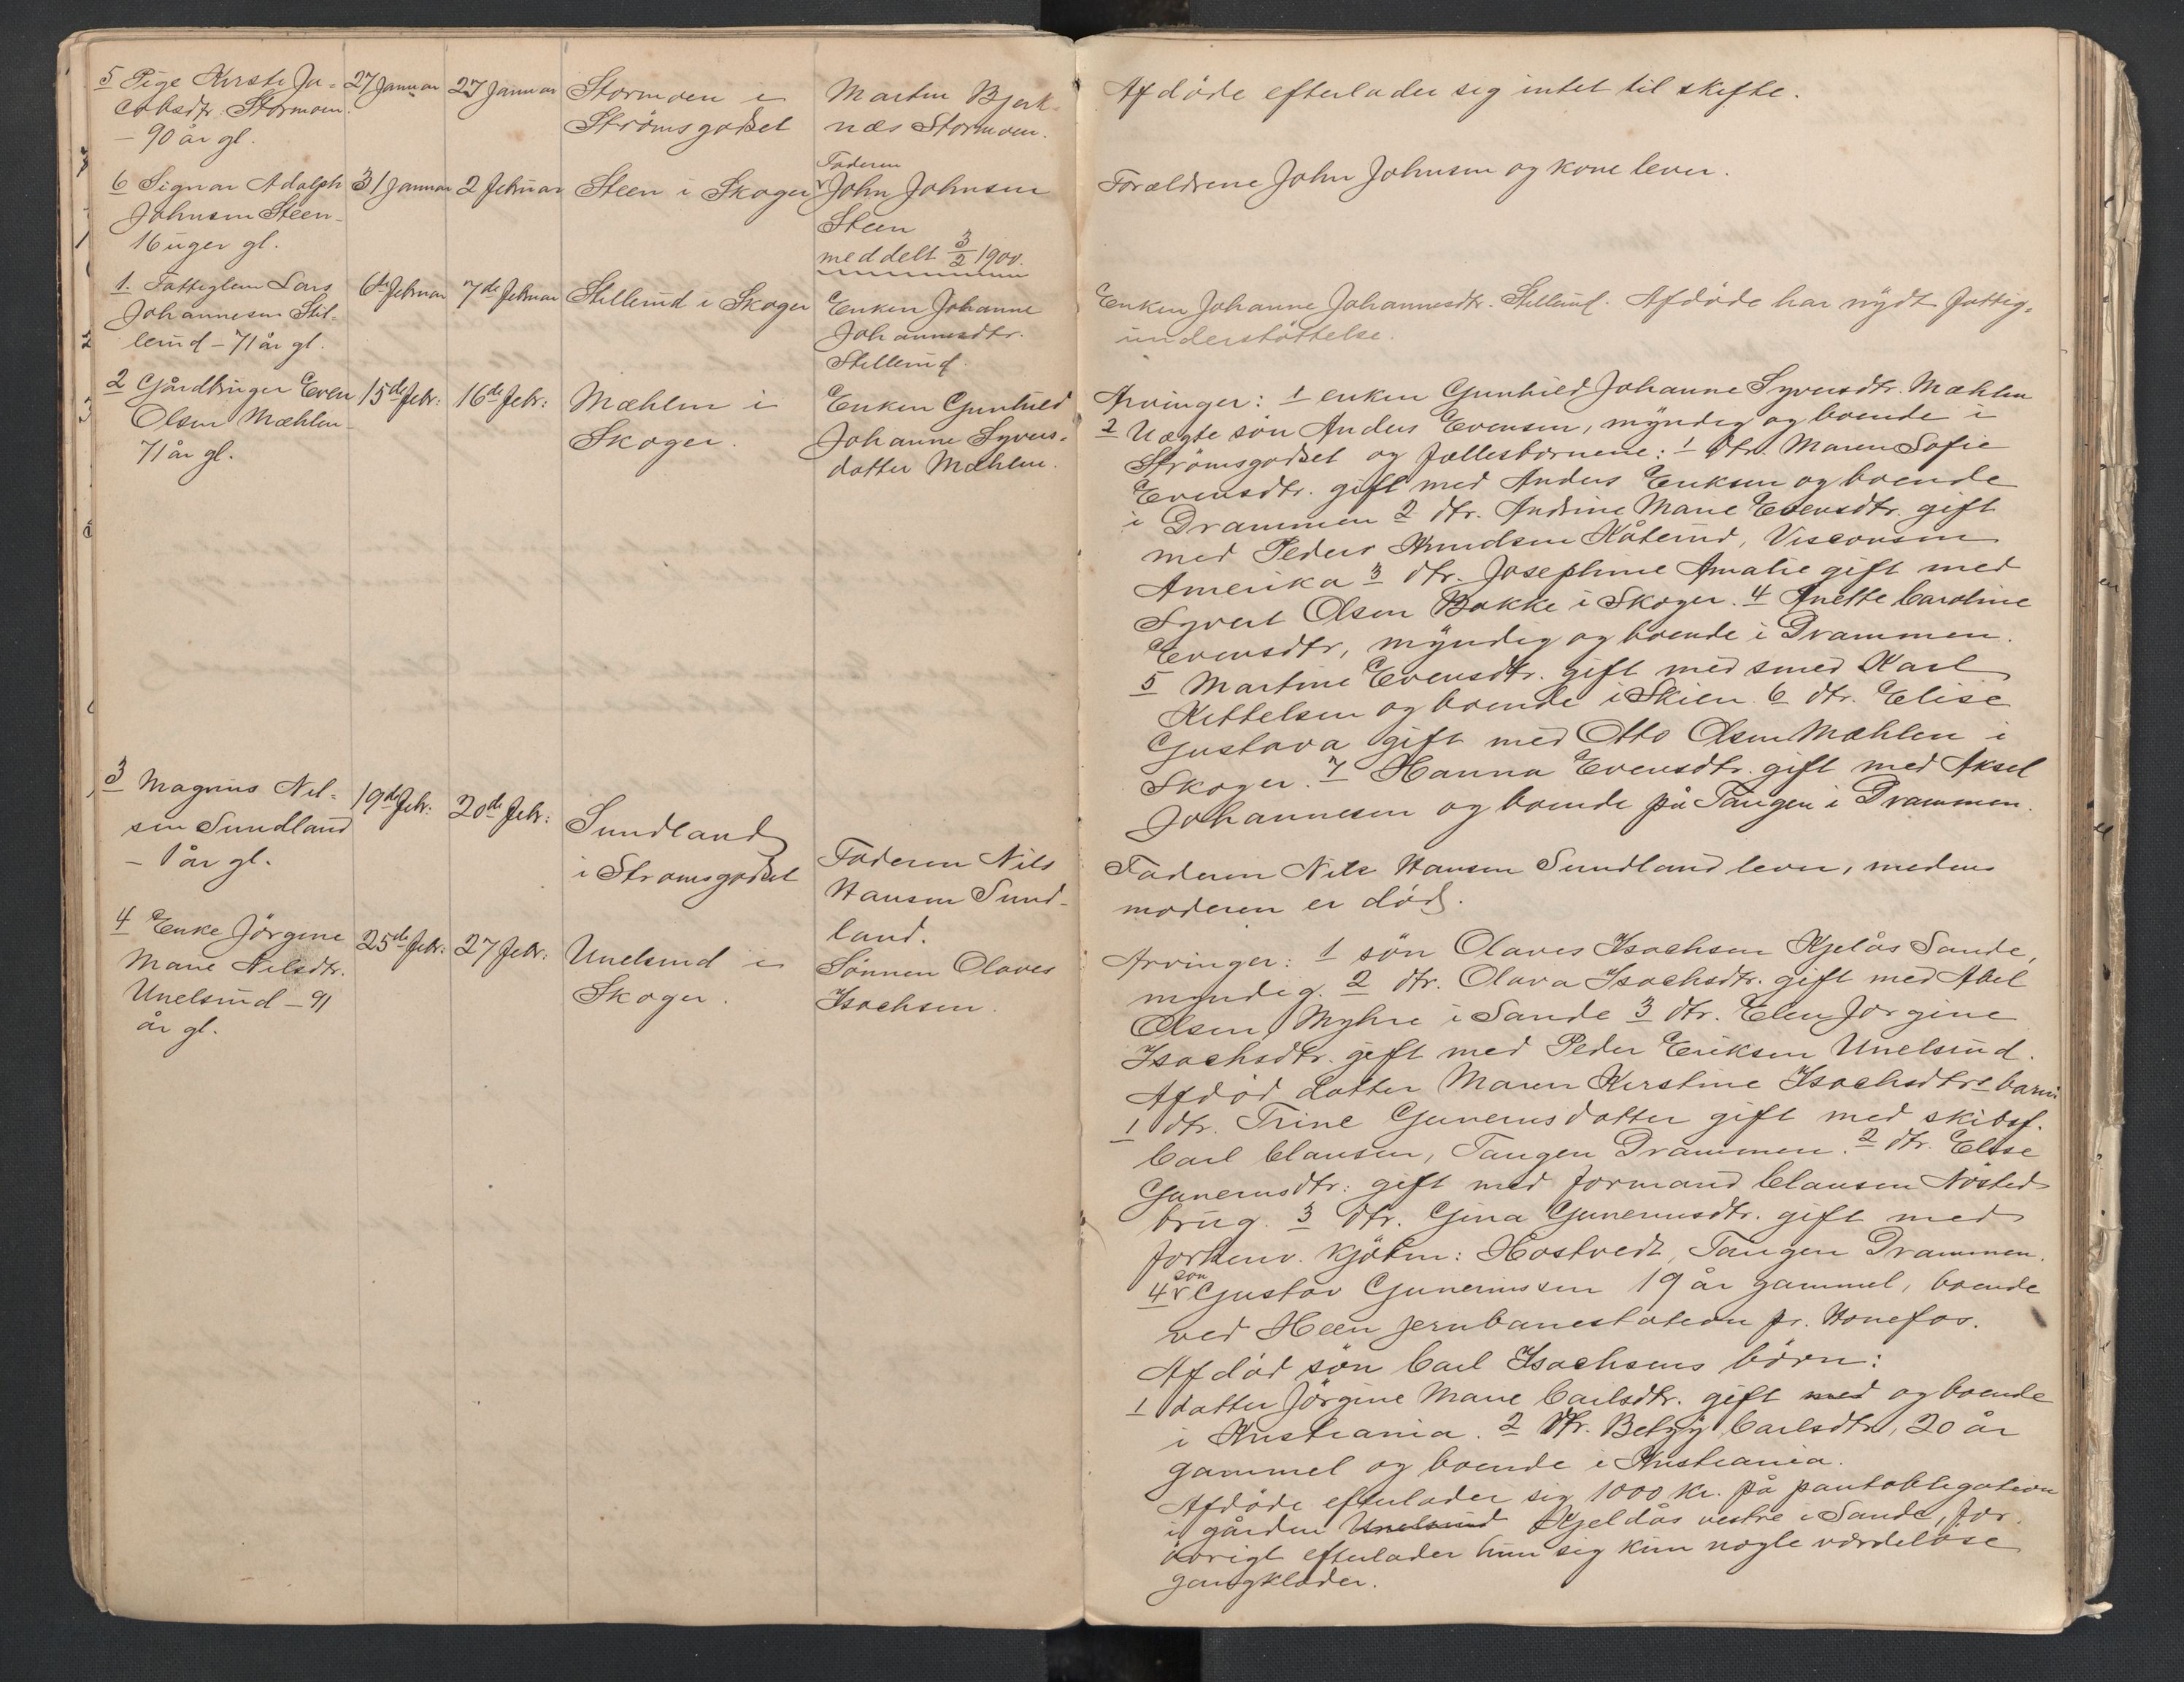 5 Pige Kirsti Ja-
cobsdtr. Stormoen
- 90 år gl.
27 Januar
27 Januar
Stormoen i
Strömsgodset
Martin Bjerk-
næs Stormoen.
Afdöde efterlader sig intet til skifte.
6 Signar Adolph
Johnsen Steen -
16 uger gl.
31 Januar
2 februar
Steen i Skoger
Faderen
John Johnsen
Steen
meddelt 3/2 1900.
Forældrene John Johnsen og kone lever.
1. Fattiglem Lars
Johannesen Stil-
lerud - 71 år gl.
6te februar
7de februar
Stillerud i Skoger
Enken Johanne
Johannesdtr.
Stillerud.
Enken Johanne Johannesdtr. Stillerud. Afdöde har nydt fattig-
understöttelse.
2 Gårdbruger Even
Olsen Mæhlen -
71 år gl.
15de febr:
16de febr:
Mæhlen i
Skoger.
Enken Gunhild
Johanne Syvers-
datter Mæhlen.
Arvinger: 1 enken Gunhild Johanne Syversdtr. Mæhlen
2 Uægte sön Anders Evensen, myndig og boende i
Strömsgodset og fællesbørnene: 1 dtr. Maren Sofie
Evensdtr. gift med Anders Eriksen og boende
i Drammen 2 dtr. Andrine Marie Evensdtr. gift
med Peder Knudsen Kåterud, Visconsin
Amerika 3 dtr. Josephine Amalie gift med
Syvert Olsen Bakke i Skoger. 4 Anette Caroline
Evensdtr, myndig og boende i Drammen.
5 Martine Evensdtr. gift med smed Karl
Kittelsen og boende i Skien. 6 dtr. Elise
Gustava gift med Otto Olsen Mæhlen i
Skoger. 7 Hanna Evensdtr. gift med Aksel
Johannesen og boende på Tangen i Drammen.
3 Magnus Nil-
sen Sundland
- 1 år gl.
19de febr:
20de febr:
Sundland
i Strömsgodset
Faderen Nils
Hansen Sund-
land.
Faderen Nils Hansen Sundland lever, medens
moderen er död.
4 Enke Jörgine
Marie Nilsdtr.
Unelsrud - 91
år gl.
25de febr:
27 febr:
Unelsrud i
Skoger.
Sönnen Olaves
Isachsen.
Arvinger: 1 sön Olaves Isachsen Kjelås Sande,
myndig. 2 dtr. Olava Isachsdtr. gift med Abel
Olsen Myhre i Sande 3 dtr. Elen Jorgine
Isachsdtr. gift med Peder Eriksen Unelsrud.
Afdöd datter Maren Kirstine Isachsdtrs barn:
1 dtr. Trine Gunerusdatter gift med skibsf.
Carl Clausen, Tangen Drammen. 2 dtr. Elise
Gunerusdtr: gift med formand Clausen Nösted
brug. 3 dtr. Gina Gunerusdtr. gift med
forhenv. kjöbm: Hostvedt, Tangen Drammen.
4 sön Gustav Gunerussen 19 år gammel, boende
ved Heen jernbanestation pr. Honefos.
Afdöd sön Carl Isachsens börn:
1 datter Jörgine Marie Carlsdtr. gift med og boende
i Kristiania. 2 dtr. Betzy Carlsdtr, 20 år
gammel og boende i Kristiania.
Afdöde efterlader sig 1000 kr. på pantobligation
i gården Unelsrud Kjeldås vestre i Sande, for-
övrigt efterlader hun sig kun nogle værdelöse
gangklæder.